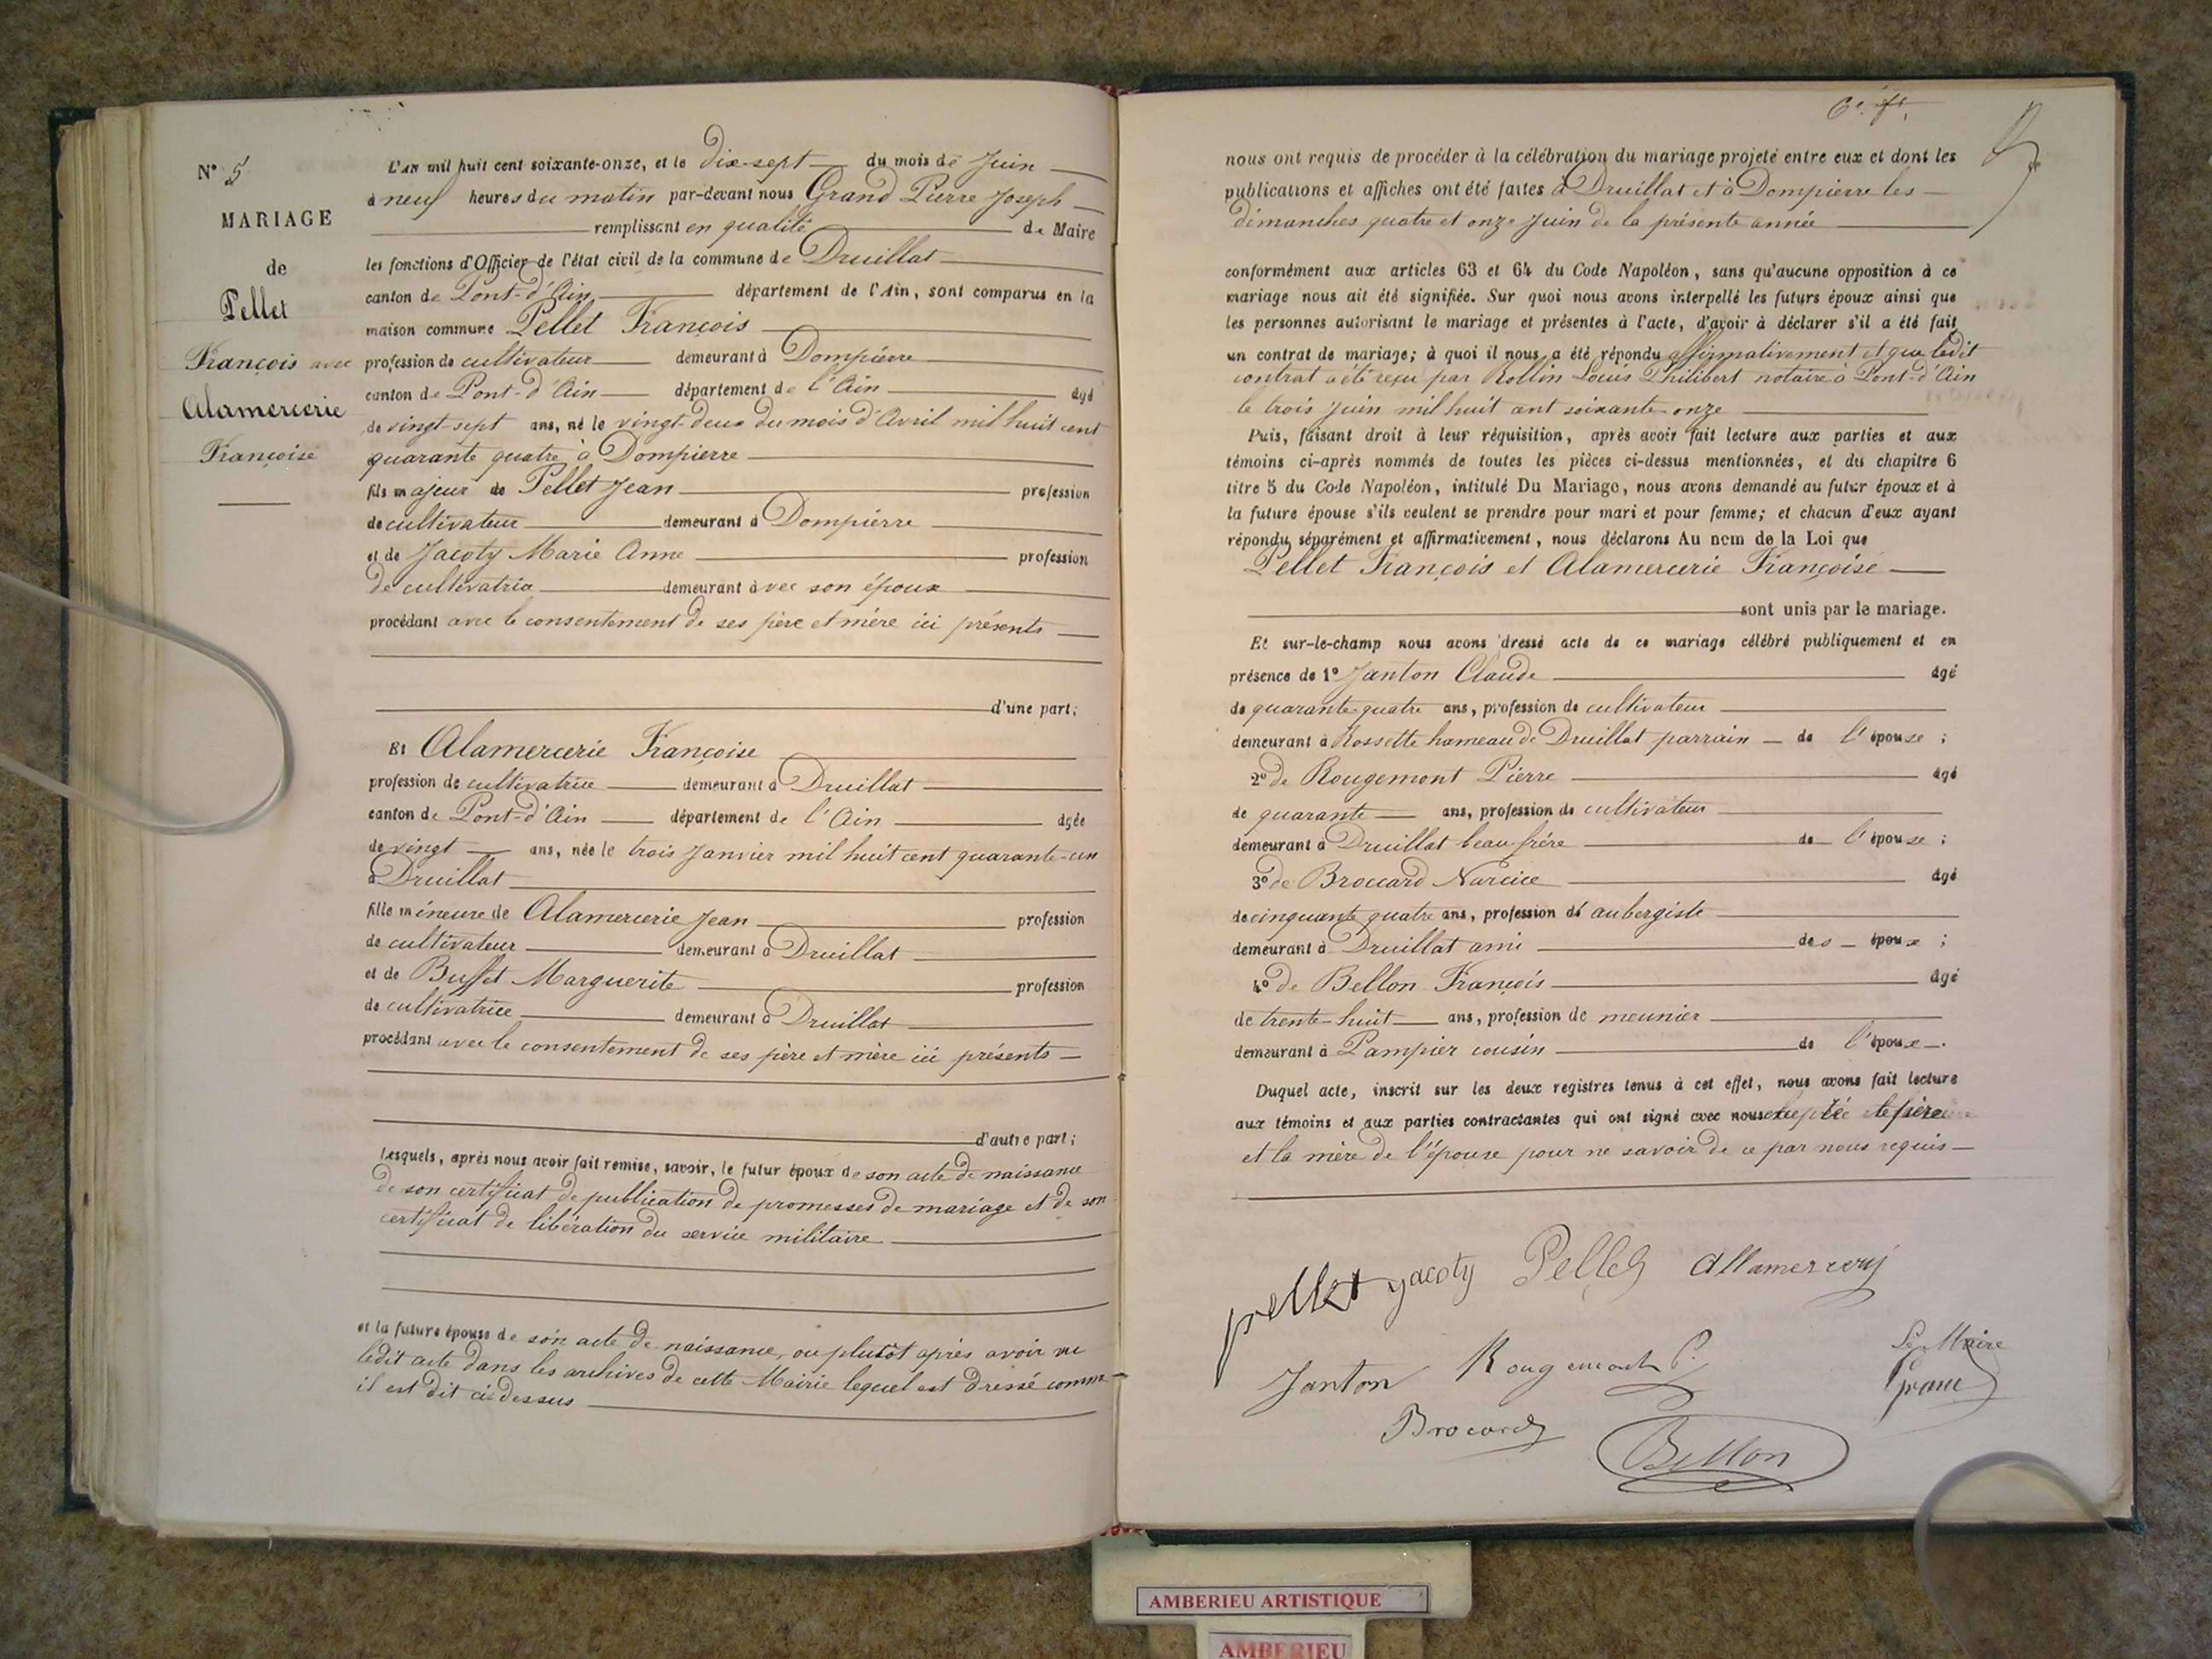 N° 5
MARIAGE
de
Pellet
François avec
Alamercerie
Françoise
L'an mil huit cent soixante-onze, et le dix-sept du mois de Juin
à neuf heures du matin par-devant nous Grand Pierre Joseph
remplissant en qualité de Maire
les fonctions d'Officier de l'état civil de la commune de Druillat
canton de Pont-d'Ain département de l'Ain, sont comparus en la
maison commune Pellet François
profession de cultivateur demeurant à Dompierre
canton de Pont-d'Ain département de l'Ain âgé
de vingt sept ans, né le vingt-deux du mois d'Avril mil huit cent
quarante quatre à Dompierre
fils majeur de Pellet Jean profession
de cultivateur demeurant à Dompierre
et de Jacoty Marie Anne profession
de cultivatrice demeurant avec son époux
procédant avec le consentement de ses père et mère ici présents
d'une part;
Et Alamercerie Françoise
profession de cultivatrice demeurant à Druillat
canton de Pont-d'Ain département de l'Ain âgée
de vingt ans, née le trois Janvier mil huit cent quarante-un
à Druillat
fille mineure de Alamercerie Jean profession
de cultivateur demeurant à Druillat
et de Buffet Marguerite profession
de cultivatrice demeurant à Druillat
procédant avec le consentement de ses père et mère ici présents
d'autre part;
Lesquels, après nous avoir fait remise, savoir, le futur époux de son acte de naissance
de son certificat de publication de promesses de mariage et de son
certificat de libération du service militaire
et la future épouse de son acte de naissance, ou plutôt après avoir vu
ledit acte dans les archives de cette Mairie lequel est dressé comme
il est dit ci-dessus
nous ont requis de procéder à la célébration du mariage projeté entre eux et dont les
publications et affiches ont été faites à Druillat et à Dompierre les
dimanches quatre et onze Juin de la présente année
conformément aux articles 63 et 64 du Code Napoléon, sans qu'aucune opposition à ce
mariage nous ait été signifiée. Sur quoi nous avons interpellé les futurs époux ainsi que
les personnes autorisant le mariage et présentes à l'acte, d'avoir à déclarer s'il a été fait
un contrat de mariage; à quoi il nous a été répondu affirmativement et que ledit
contrat a été reçu par Rollin Louis Philibert notaire à Pont-d'Ain
le trois Juin mil huit cent soixante-onze
Puis, faisant droit à leur réquisition, après avoir fait lecture aux parties et aux
témoins ci-après nommés de toutes les pièces ci-dessus mentionnées, et du chapitre 6
titre 5 du Code Napoléon, intitulé Du Mariage, nous avons demandé au futur époux et à
la future épouse s'ils veulent se prendre pour mari et pour femme; et chacun d'eux ayant
répondu séparément et affirmativement, nous déclarons Au nom de la Loi que
Pellet François et Alamercerie Françoise
sont unis par le mariage.
Et sur-le-champ nous avons dressé acte de ce mariage célébré publiquement et en
présence de 1° Janton Claude âgé
de quarante quatre ans, profession de cultivateur
demeurant à Rossette hameau de Druillat parrain de l'épouse;
2° de Rougemont Pierre âgé
de quarante ans, profession de cultivateur
demeurant à Druillat beau frère de l'épouse;
3° de Broccard Narcice âgé
de cinquante quatre ans, profession de aubergiste
demeurant à Druillat ami des époux;
4° de Bellon François âgé
de trente-huit ans, profession de meunier
demeurant à Pampier cousin de l'époux.
Duquel acte, inscrit sur les deux registres tenus à cet effet, nous avons fait lecture
aux témoins et aux parties contractantes qui ont signé avec nous le père
et la mère de l'épouse pour ne savoir de ce par nous requis
pellet Jacoty Pellet allamercery
Janton Rougemont P. Le Maire
Brocard Bellon Grand
AMBERIEU ARTISTIQUE
AMBERIEU